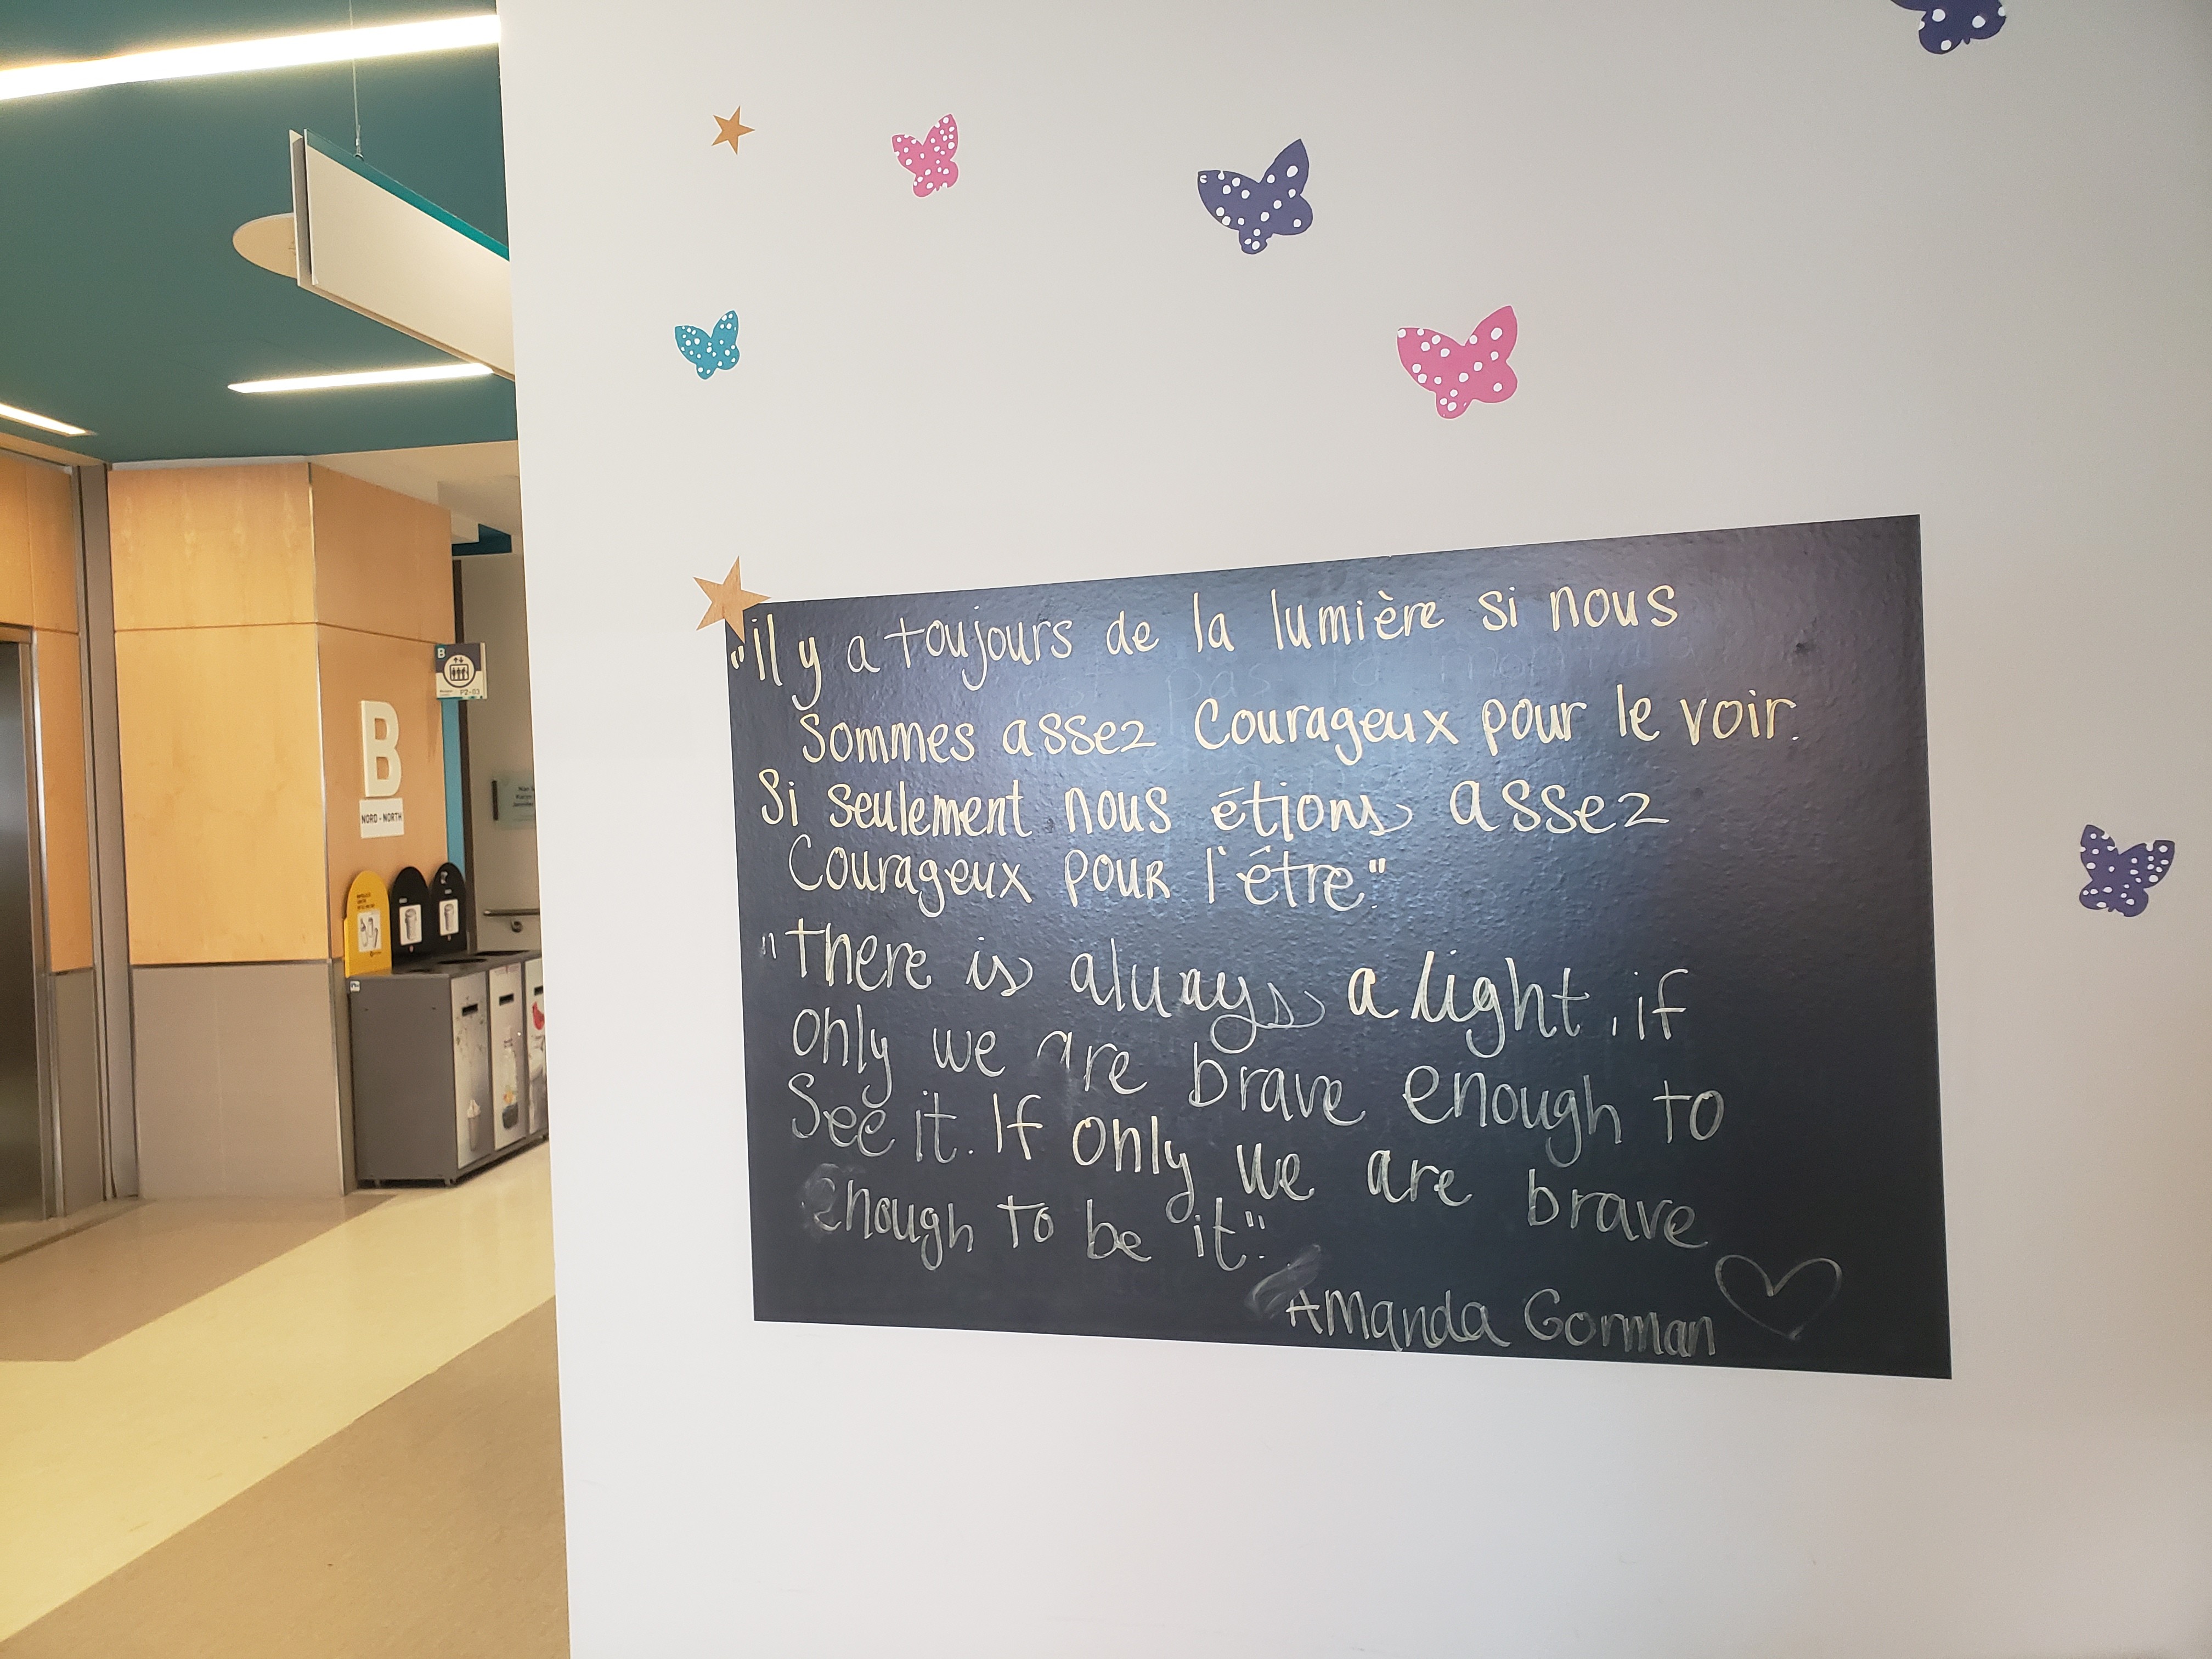 "il y a toujours de la lumière si nous
sommes assez courageux pour le voir.
Si seulement nous étions assez
courageux pour l'être."
"There is always a light, if
only we are brave enough to
See it. If only we are brave
enough to be it".
Amanda Gorman
B
P2-S3
B
NORD-NORTH